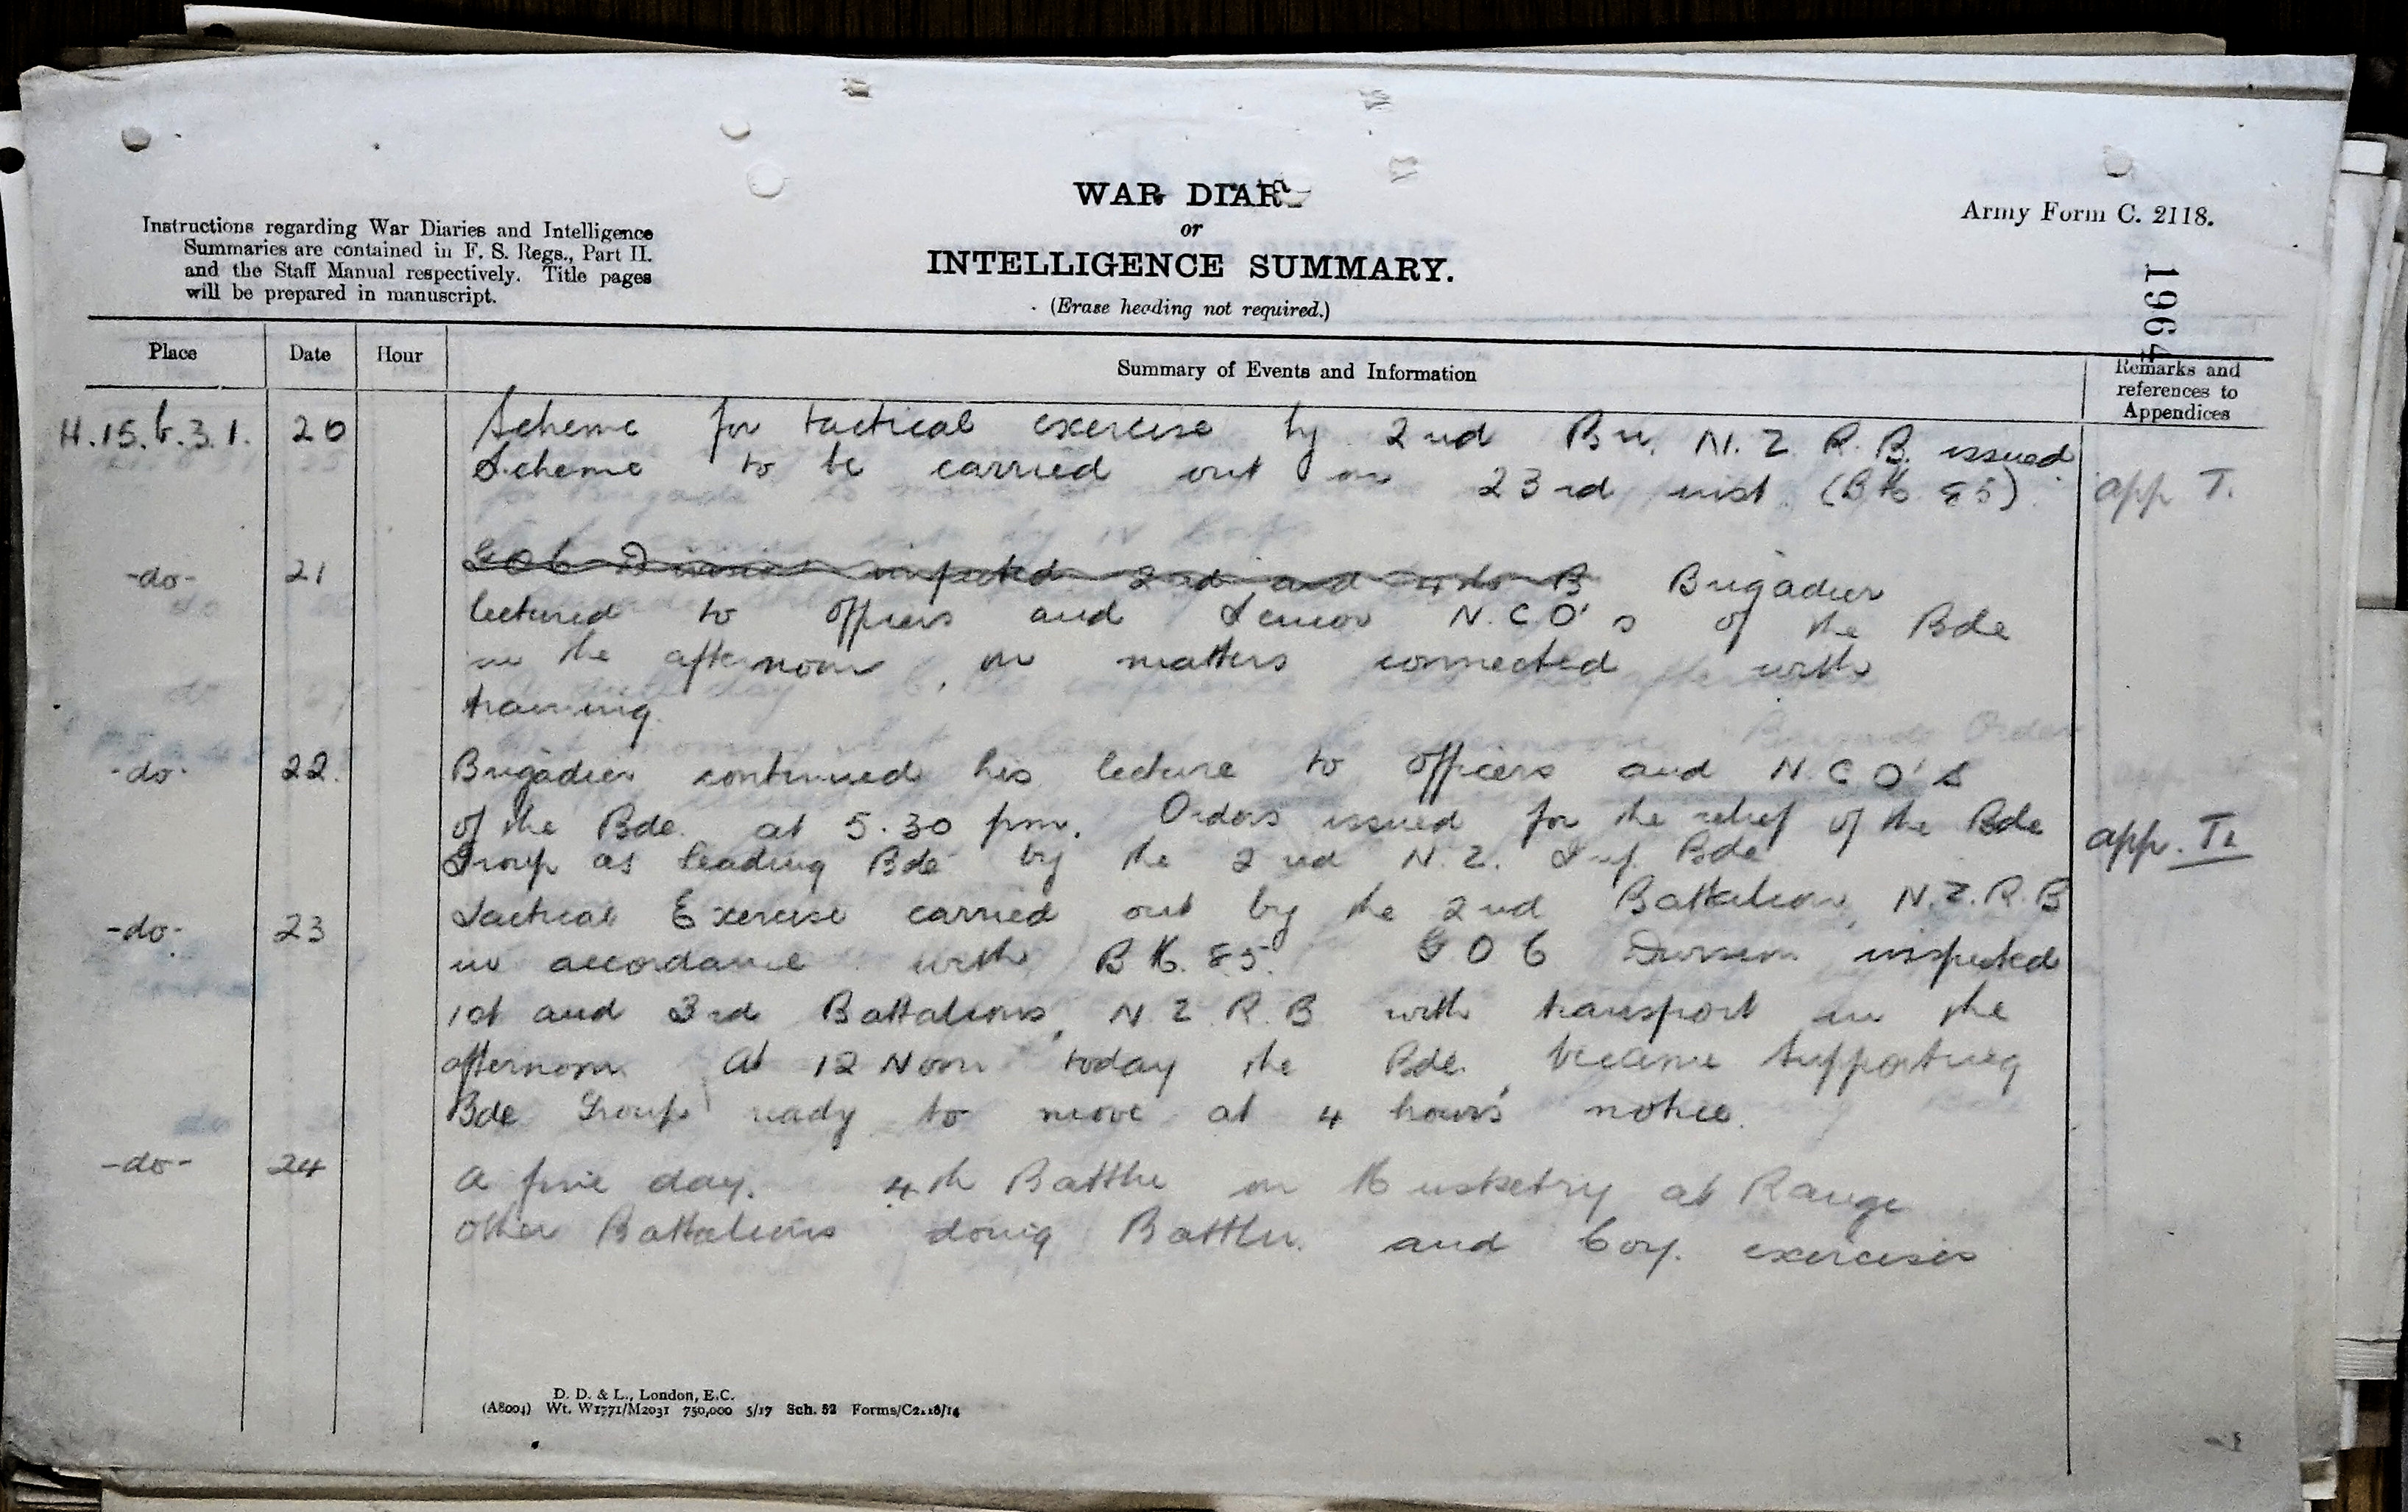 Army Form C. 2118.
WAR DIAR
or
INTELLIGENCE SUMMARY.
(Erase heading not required.)
Instructions regarding War Diaries and Intelligence
Summaries are contained in F. S. Regs., Part II.
and the Staff Manual respectively. Title pages
will be prepared in manuscript.
1964
Place Date Hour Summary of Events and Information Remarks and
references to
Appendices
H.15.b.3.1. 20 Scheme for tactical exercise by 2nd Bn. N.Z.R.B. issued
Scheme to be carried out on 23rd inst. (BM 85) app T.
-do- 21 GOC Division inspected 2nd and 4th B Brigadier
lectured to officers and Senior N.C.O's of the Bde
in the afternoon, on matters connected with
training.
-do- 22. Brigadier continued his lecture to officers and N.C.O's
of the Bde. at 5.30 pm. Orders issued for the relief of the Bde
Group as leading Bde by the 2nd N.Z. Inf. Bde app. T1
-do- 23 Tactical Exercise carried out by the 2nd Battalion, N.Z.R.B
in accordance with BM. 85. GOC Division inspected
1st and 3rd Battalions, N.Z.R.B with transport in the
afternoon. At 12 Noon today the Bde. became supporting
Bde Group ready to move at 4 hours' notice.
-do- 24 A fine day. 4th Battln on Musketry at Range
other Battalions doing Battln. and Coy. exercises
D. D. & L., London, E.C.
(A8004) Wt. W1771/M2031 750,000 5/17 Sch. 52 Forms/C2118/14